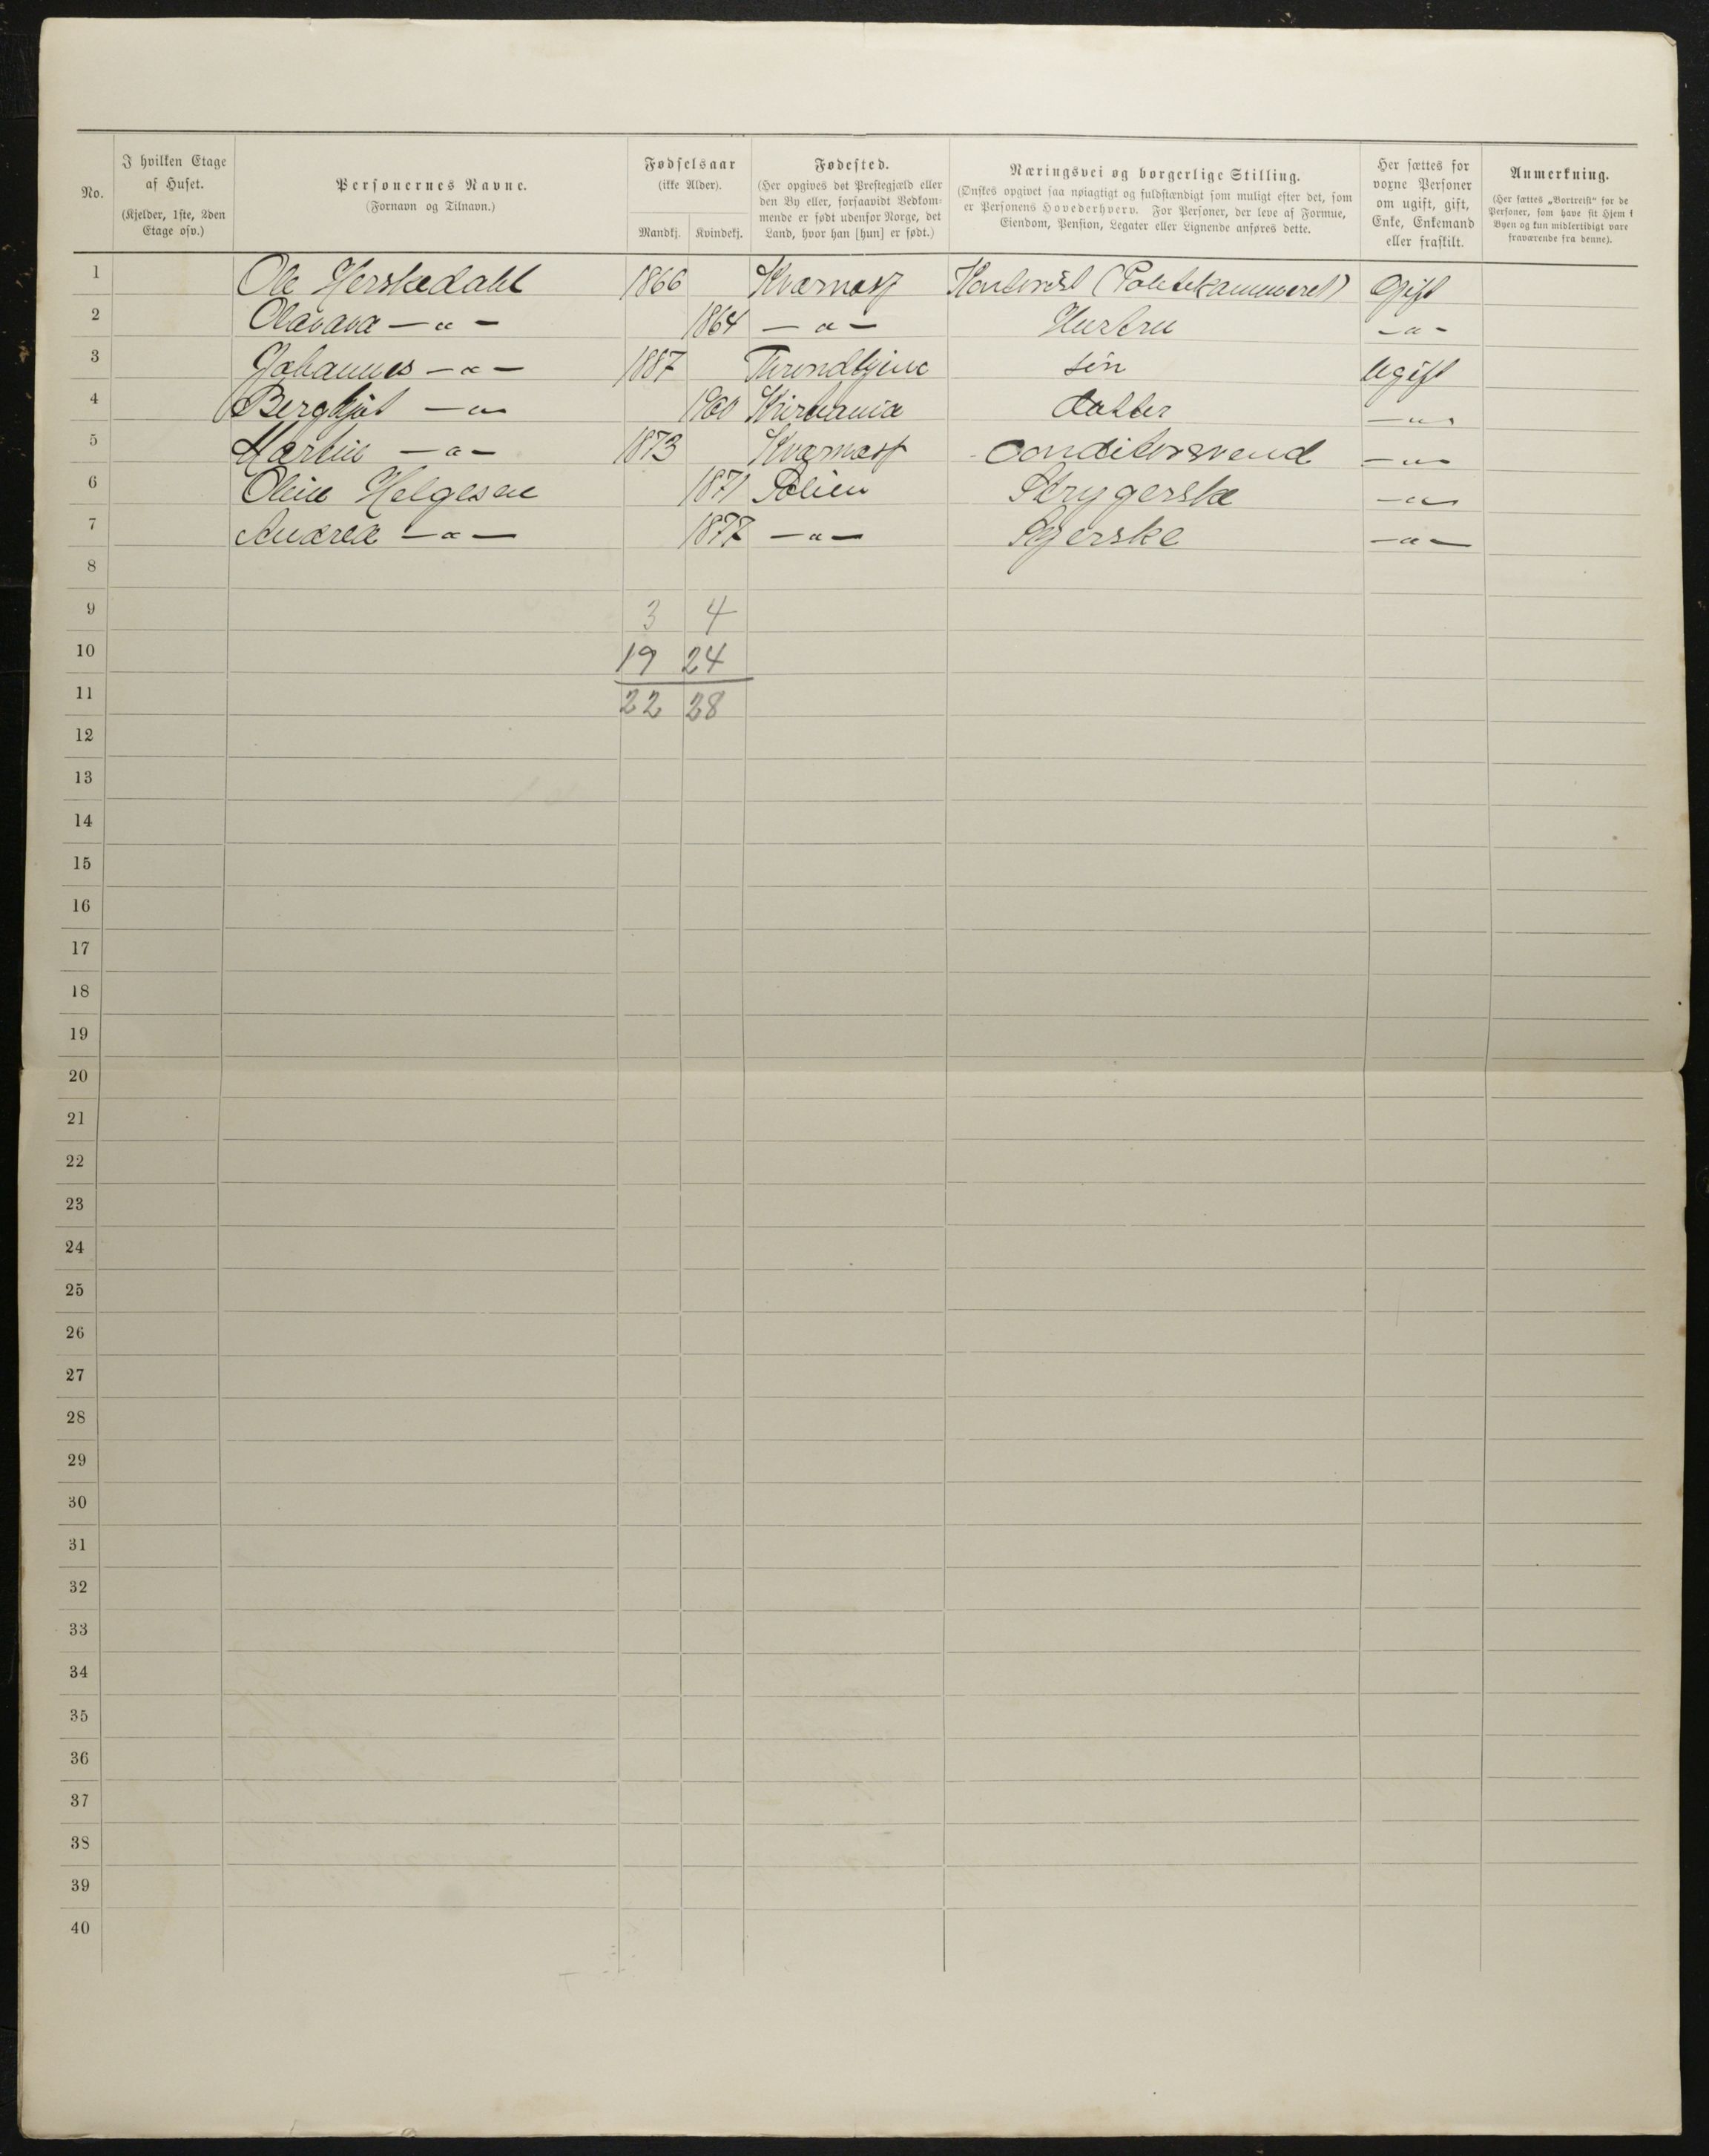 No.
I hvilken Etage af Huset. (Kjelder, 1ste, 2den Etage osv.)
Personernes Navne. (Fornavn og Tilnavn.)
Fødselsaar (ikke Alder). Mandkj. Kvindekj.
Fødested. (Her opgives det Prestegjæld eller den By eller, forsaavidt Vedkommende er født udenfor Norge, det Land, hvor han [hun] er født.)
Næringsvei og borgerlige Stilling. (Ønskes opgivet saa nøiagtigt og fuldstændigt som muligt efter det, som er Personens Hovederhverv. For Personer, der leve af Formue, Eiendom, Pension, Legater eller Lignende anføres dette.
Her sættes for voxne Personer om ugift, gift, Enke, Enkemand eller fraskilt.
Anmerkning. (Her sættes „Bortreist“ for de Personer, som have sit Hjem i Byen og kun midlertidigt vare fraværende fra denne).
1 Ole Herskedahl 1866 Kværnæs Kontorist (Politikammeret) Gift
2 Olavava — " — 1864 — " — Hustru — " —
3 Johannes — " — 1887 Throndhjem Søn Ugift
4 Bergljot — " — 1900 Kristiania datter — " —
5 Martin — " — 1873 Kværnæs Conditorsvend — " —
6 Oline Helgesen 1871 Strygerske — " —
7 Andrea — " — 1877 — " — Syerske — " —
8
9 3 4
10 19 24
11 22 28
12
13
14
15
16
17
18
19
20
21
22
23
24
25
26
27
28
29
30
31
32
33
34
35
36
37
38
39
40